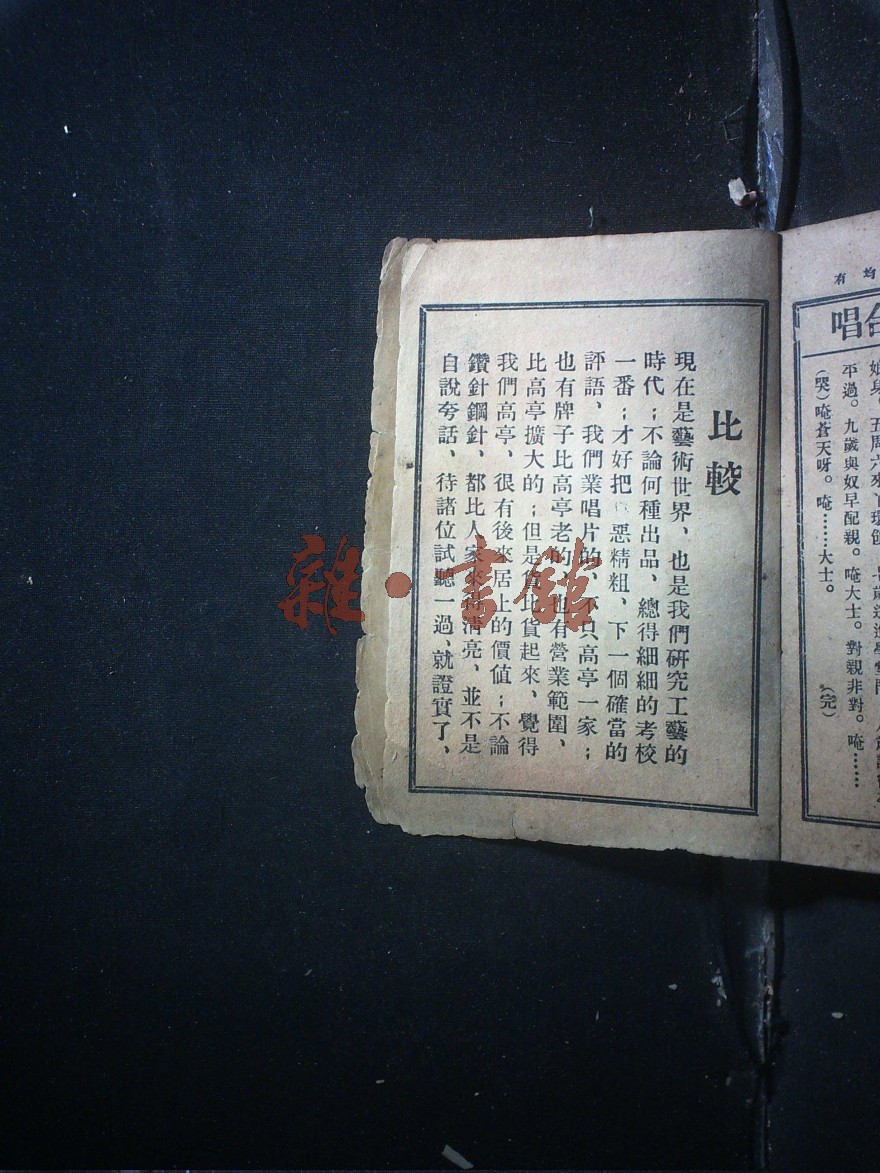 均有
合唱
平過。九歲與奴早配親。唵大士。對親非對。唵⋯⋯
(哭)唵蒼天呀。唵⋯⋯大士。 (完)
比較
現在是藝術世界、也是我們研究工藝的
時代；不論何種出品、總得細細的考校
一番；才好把 惡精粗、下一個確當的
評語、我們業唱片的、不只高亭一家；
也有牌子比高亭老的、也有營業範圍、
比高亭擴大的；但是貨比貨起來、覺得
我們高亭、很有後來居上的價值；不論
鑽針鋼針、都比人家來得清亮、並不是
自說夸話、待諸位試聽一過、就證實了、
雜·書館